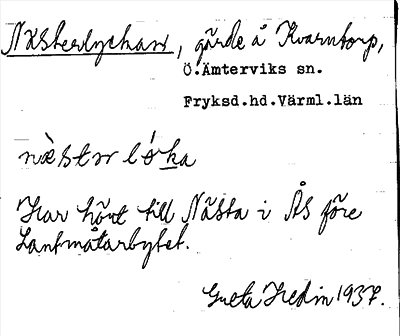 Nästerlyckan, gärde å Kvarntorp,
Ö.Ämterviks sn.
Fryksd.hd.Värml.län
næ̀stɜr ló̱ka
Har hört till Nästa i Ås före
Lantmätarbytet.
Greta Hedin 1937.